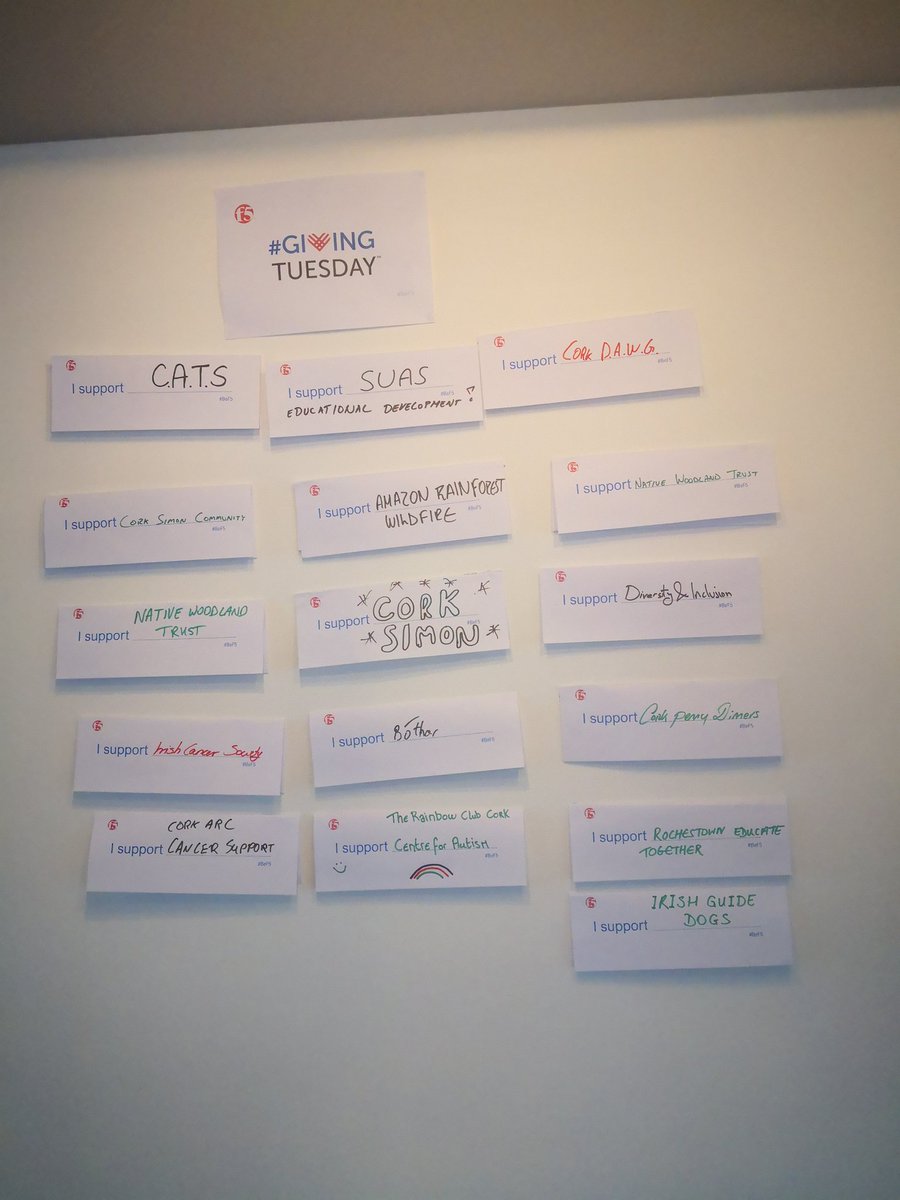 f5
#GIVING
TUESDAY™
#BeF5
f5
I support C.A.T.S
#BeF5
f5
I support SUAS
#BeF5
EDUCATIONAL DEVELOPMENT!
f5
I support CORK D.A.W.G.
#BeF5
f5
I support CORK SIMON COMMUNITY
#BeF5
f5
I support AMAZON RAINFOREST
WILDFIRE
#BeF5
f5
I support NATIVE WOODLAND TRUST
#BeF5
f5
NATIVE WOODLAND
I support TRUST
#BeF5
f5
I support CORK
SIMON
#BeF5
f5
I support Diversity & Inclusion
#BeF5
f5
I support Irish Cancer Society
#BeF5
f5
I support Bóthar
#BeF5
f5
I support Cork Penny Dinners
#BeF5
f5
CORK ARC
I support CANCER SUPPORT
#BeF5
f5
The Rainbow Club Cork
I support Centre for Autism
#BeF5
f5
I support ROCHESTOWN EDUCATE
TOGETHER
#BeF5
f5
IRISH GUIDE
I support DOGS
#BeF5